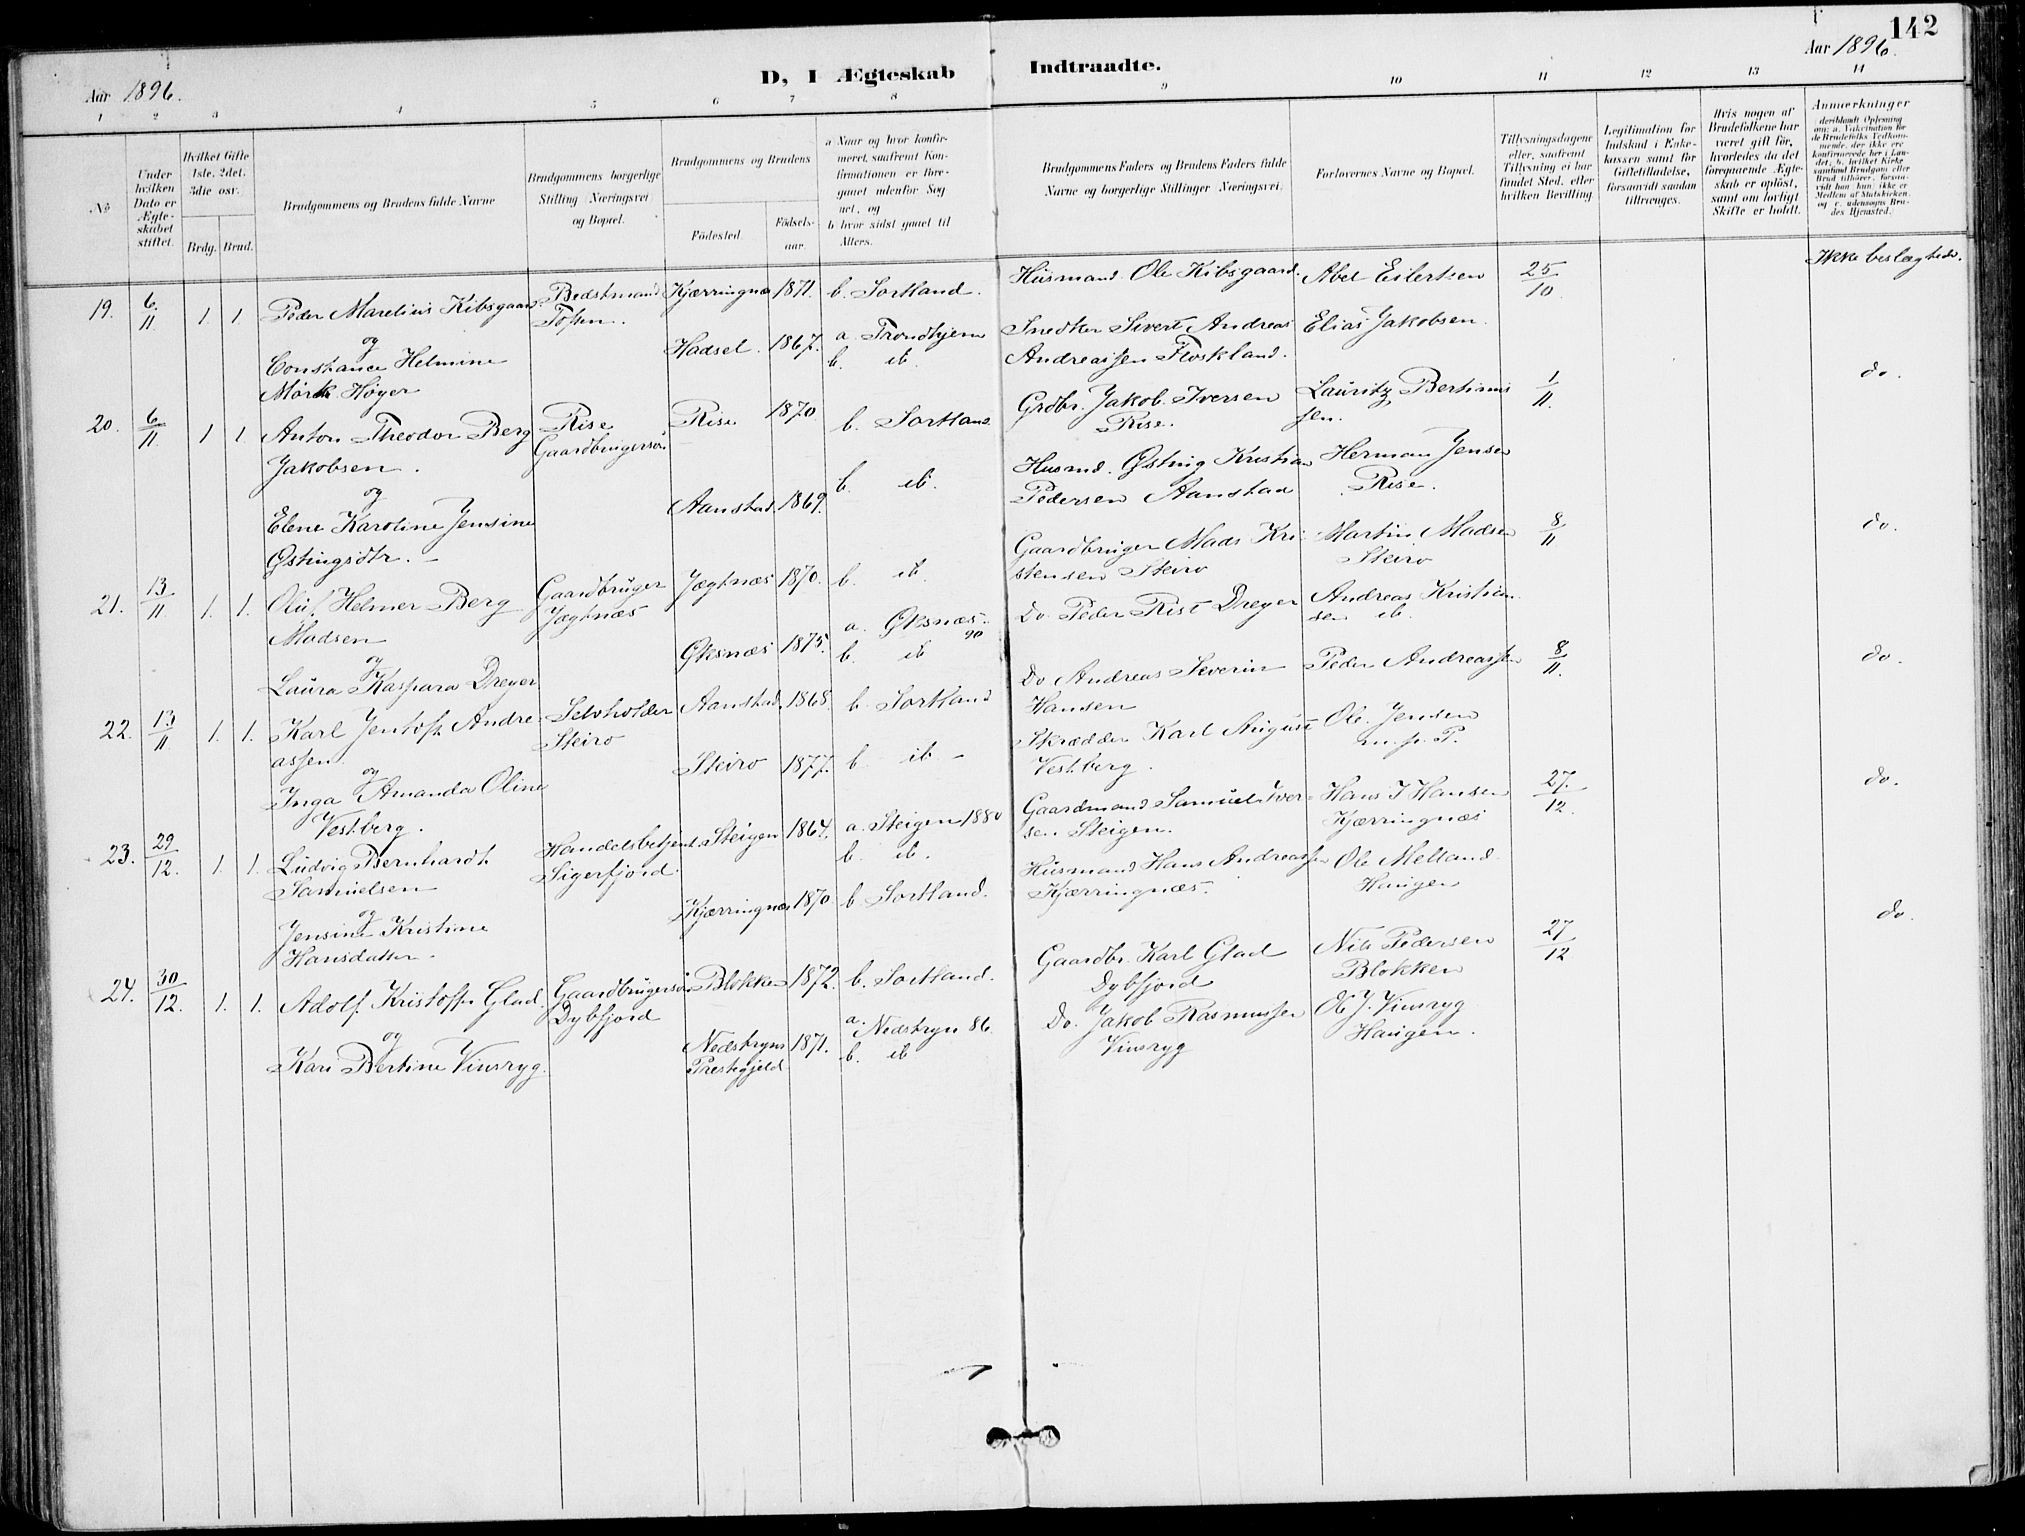 142
Aar 1896.
D, I Ægteskab Indtraadte.
Aar 1896.
1 2 3 4 5 6 7 8 9 10 11 12 13 14
No
Under hvilken Dato er Ægteskabet stiftet.
Hvilket Gifte 1ste, 2det, 3die osv.
Brdg. Brud.
Brudgommens og Brudens fulde Navne
Brudgommens borgerlige Stilling Næringsvei og Bopæl.
Brudgommens og Brudens
Födested.
Födselsaar.
a Naar og hvor konfirmeret, saafremt Konfirmationen er foregaaet udenfor Sognet, og
b hvor sidst gaaet til Alters.
Brudgommens Faders og Brudens Faders fulde Navne og borgerlige Stillinger Næringsvei
Forlovernes Navne og Bopæl.
Tillysningsdagene eller, saafremt Tillysning ei har fundet Sted, efter hvilken Bevilling
Legitimation for Indskud i Enkekassen samt for Giftetilladelse, forsaavidt saadan tiltrænges.
Hvis nogen af Brudefolkene har været gift för, hvorledes da det foregaaende Ægteskab er oplöst, samt om lovligt Skifte er holdt.
Anmerkninger
19. 6/11 1 1. Peder Marelius Kibsgaard
og
Constance Helmine
Mörch Höyer
Bedstmand
Kjærringnæs 1871. b. Sortland.
Hadsel. 1867. a. Trondhjem
b. ib.
Husmand Ole Kibsgaard.
Snedker Sivert Andreas
Andreassen Floskland.
Abel Eilertsen
Elias Jakobsen.
25/10
Ikke beslægtede.
20. 6/11 1 1. Anton Theodor Berg
Jakobsen.
og
Elene Karoline Jensine
Østingsdtr.
Rise
Gaardbrugersøn
Rise 1870 b. Sortland
Aanstad. 1869. b. ib.
Grdbr. Jakob Iversen
Rise.
Husmd. Østing Kristian
Pedersen Aanstad
Lauritz Bertinus
sen.
Herman Jensen
Rise.
1/11.
do.
21. 13/11 1. 1. Oluf Helmer Berg
Madsen
og
Laura Kaspara Dreyer
Gaardbruger
Jægtnæs
Jægtnæs 1870. b. ib.
Øksnæs 1875. a. Øksnæs 90
b. ib
Gaardbruger Mads Kri
stensen Steiro
Do Peder Rist Dreyer
Martin Madsen
Steiro
Andreas Kristian
sen ib.
8/11
do.
22. 13/11 1. 1. Karl Jentoft Andre
assen.
og
Inga Amanda Oline
Vestberg.
Selvholder
Steiro
Aanstad. 1868. b. Sortland
Steiro 1877. b. ib.
Do Andreas Severin
Hansen
Skrædder Karl August
Vestberg.
Peder Andreassen
Ole Jensen
m. p. P.
8/11.
do.
23. 29/12. 1 1. Ludvig Bernhardt
Samuelsen
og
Jensine Kristine
Hansdatter.
Handelsbetjent
Sigerfjord.
Steigen 1864. a. Steigen 1880
b. ib.
Kjærringnæs 1870 b. Sortland.
Gaardmand Samuel Iver
sen Steigen.
Husmand Hans Andreassen
Kjærringnæs.
Hans J Hansen
Kjærringnæs
Ole Melland.
Haugen
27./12.
do.
24. 30/12. 1. 1. Adolf Kristoffer Glad.
og
Kari Bertine Vinsryg.
Gaardbrugersøn
Dybfjord
Blokken 1872. b. Sortland.
Nedstryns
Prestegjeld. 1871. a. Nedstryn 86.
b. ib
Gaardbr. Karl Glad
Dybfjord
Do. Jakob Rasmussen
Vinsryg
Nils Pedersen
Blokken
Ole J. Vinsryg
Haugen.
27/12
do.